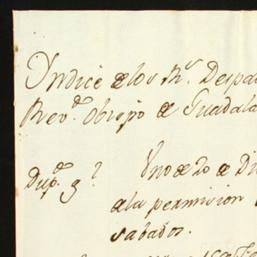 Yndice de los Rs. Despa
Revdo. Obispo de Guadala
Dupdo. g?
Uno de 20 de Di
a la permision
sabados.